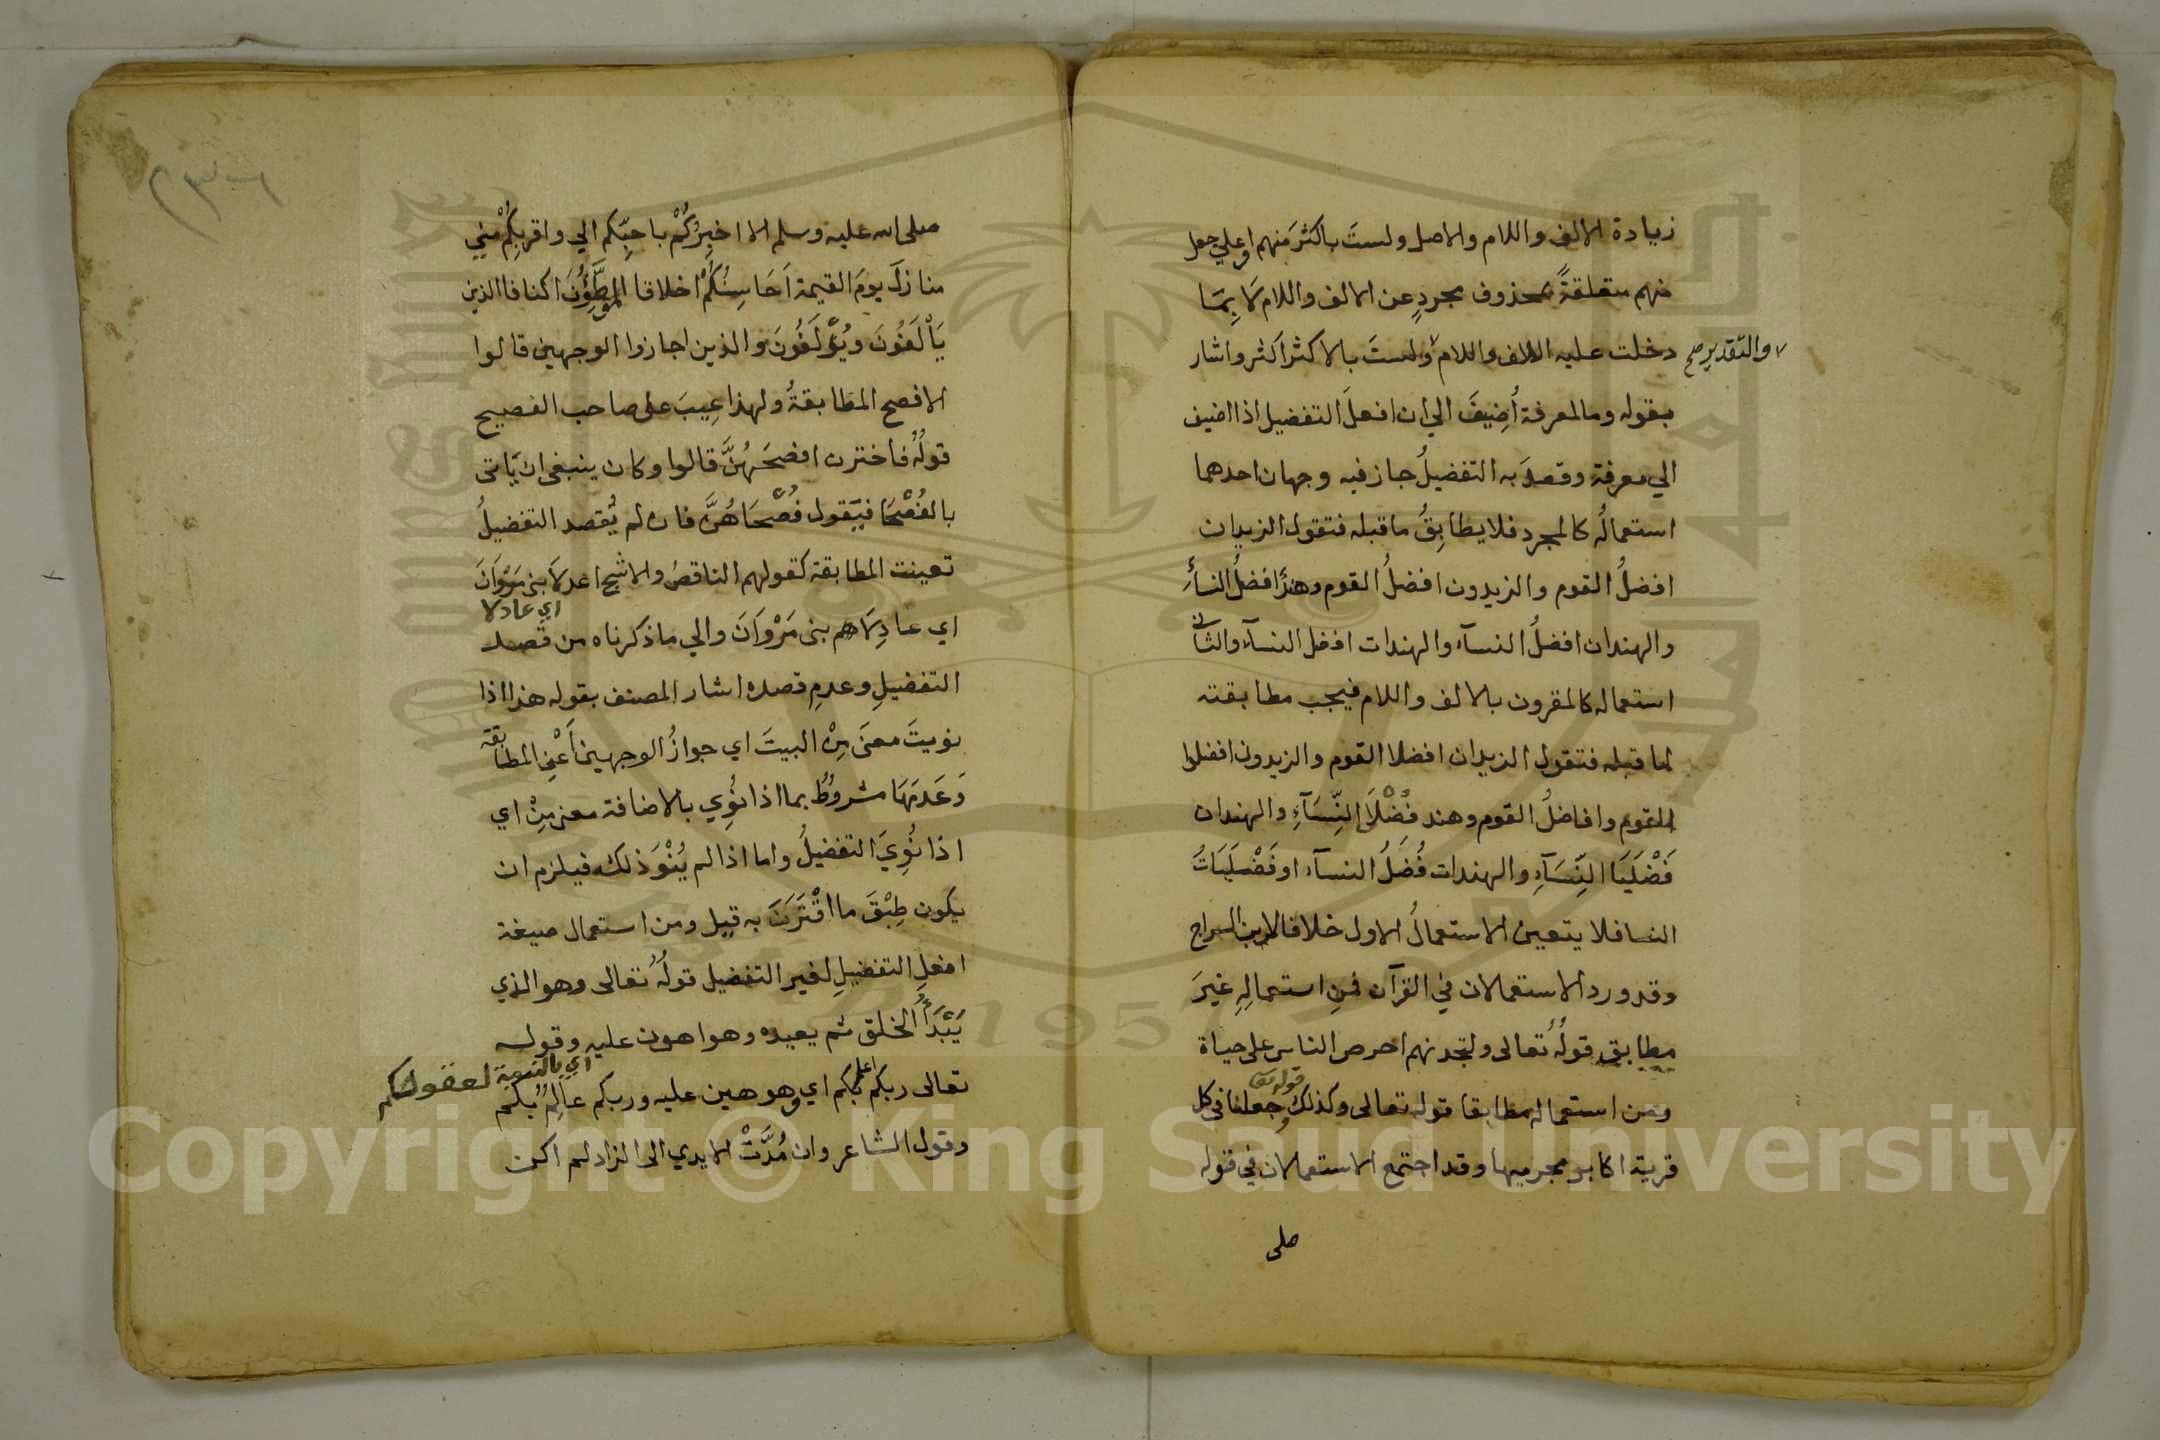 زيادة الالف واللام والاصل ولستَ باكثرَ منهم او علي جعل
منهم متعلقةً بمحذوف مجردٍ عن الالف واللام لَا بِمَا
دخلت عليه الالف واللام ولستَ بالاكثر اكثر واشار
والتقدير صح
بقوله وما لمعرفة أُضِيفَ الي ان افعلَ التفضيل اذا اضيف
الي معرفة وقصدَ به التفضيلُ جاز فيه وجهان احدهما
استعمالُه كالمجرد فلا يطابِقُ ما قبله فتقول الزيدان
افضلُ القوم والزيدون افضلُ القوم وهندٌ افضلُ النسآءِ
والهندان افضلُ النسآء والهندات افضل النسآء والثانى
استعماله كالمقرون بالالف واللام فيجب مطابقته
لما قبله فتقول الزيدان افضلا القوم والزيدون افضلوا
القوم وافاضلُ القوم وهند فُضْلَى النِّسَآءِ والهندان
فُضْلَيَا النِّسَآءِ والهندات فُضَلُ النسآء او فُضْلَيَاتُ
النسا فلا يتعين الاستعمالُ الاول خلافا لابن السراج
وقد ورد الاستعمالان في القرآن فمن استعمالِهِ غيرَ
مطابق قولُهُ تعالى ولتجدنهم احرص الناس على حياة
ومن استعماله مطابقا قوله تعالى وكذلك جعلنا فى كل
قوله تعا
قرية اكابر مجرميها وقد اجتمع الاستعمالان في قوله
صلى
٢٣٦
صلى الله عليه وسلم الا اخبِرُكُمْ باحبِّكم الي واقربِكُمْ مني
منازلَ يومَ القيمة اَحَاسِنُكُمْ اخلاقا الموَطَّؤُنَ اكنافا الذين
يَاْلَفُونَ ويُؤْلَفُونَ والذين اجازوا الوجهين قالوا
الافصح المطابقةُ ولهذا عِيبَ على صاحب الفصيح
قولُهُ فاخترن افصحَهُنَّ قالوا وكان ينبغى ان يَّاتى
بالفُصْحَا فيَقول فُصْحَاهُنَّ فان لم يُقصد التفضيلُ
تعينت المطابقة كقولهم الناقصُ والاشج اعدلَا بنى مَرْوَانَ
اي عادلا
اي عادِلَاهم بنى مَرْوَانَ والي ما ذكرناه من قصد
التفضيلِ وعدمِ قصده اشار المصنف بقوله هذا اذا
نويتَ معنَى مِنْ البيتَ اي جوازُ الوجهين اَعْنِي المطابقة
وَعَدَمَهَا مشروُطٌ بما اذا نُوِي بالاضافة معنى مِنْ اي
اذا نُوِيَ التفضيلُ واما اذا لم يُنْوَ ذلك فيلزم ان
يكون طِبْقَ ما اقْتَرَنَ به قيل ومن استعمال صيغة
افعلِ التفضيلِ لغير التفضيل قولُهُ تعالى وهو الذي
يَبْدَأُ الخلق ثم يعيده وهو اهون عليه وقوله
تعالى ربكم اعلم بكم اي وهو هين عليه وربكم عالِمٌ بكم
وقول الشاعر وان مُدَّتْ الايدي الى الزاد لم اكن
Copyright © King Saud University
1957